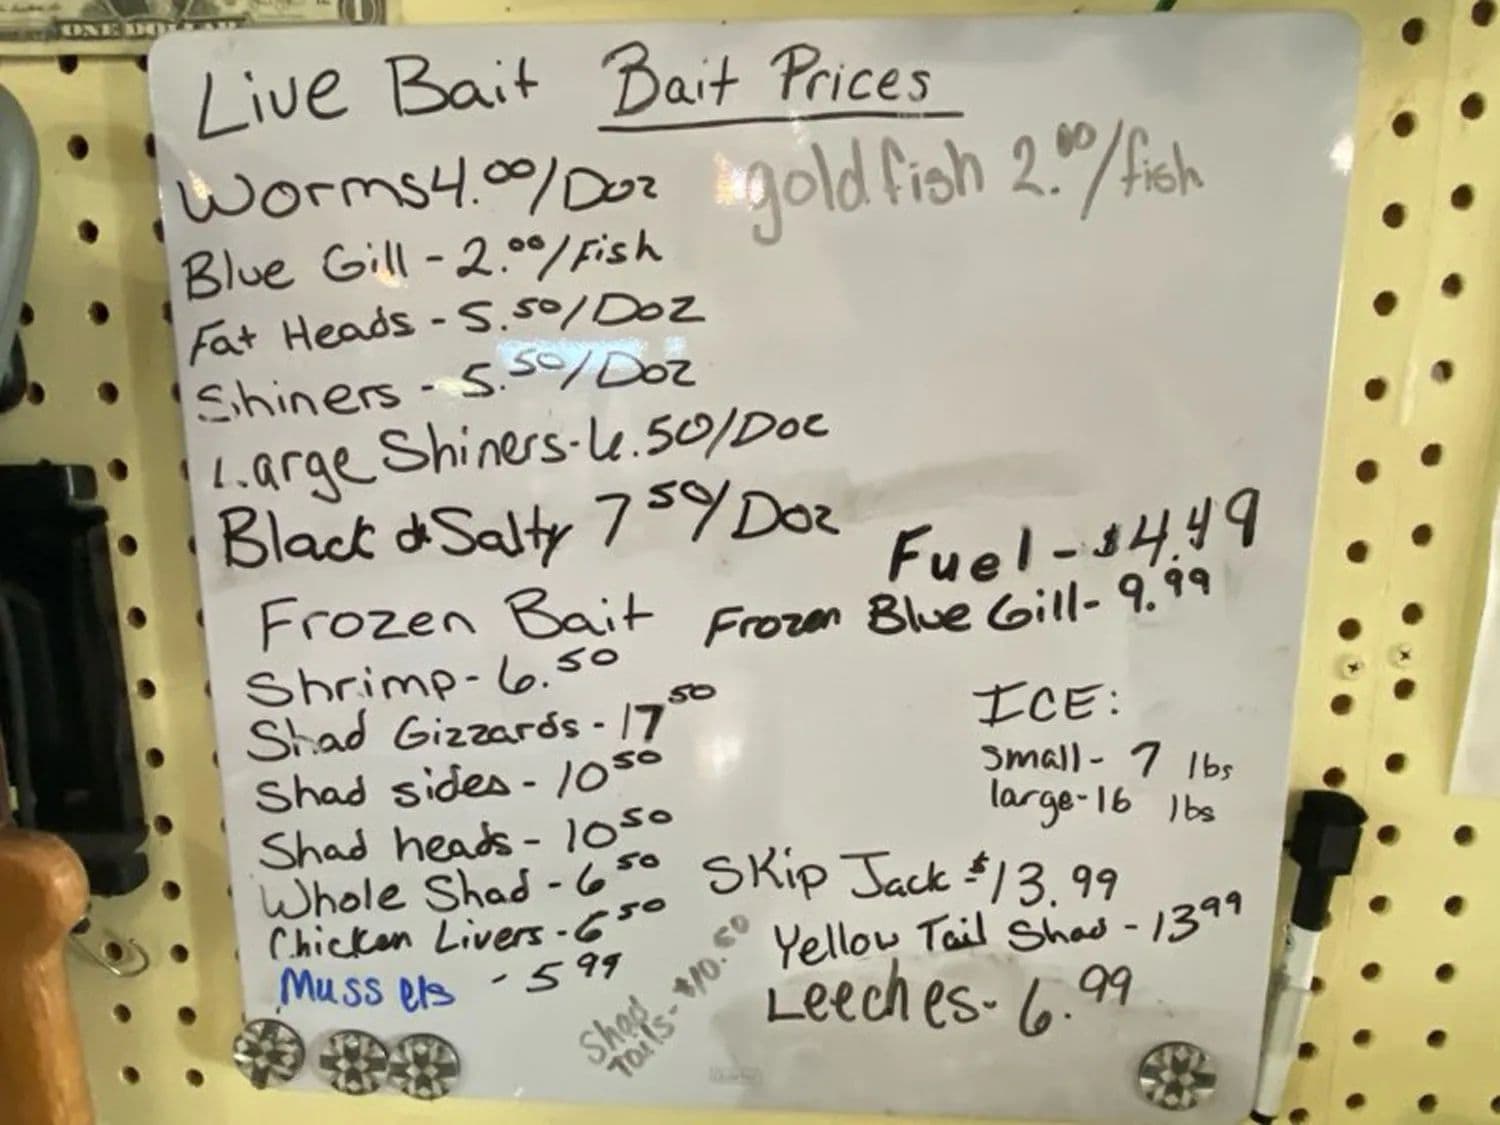 ONE DOLLAR
Live Bait Bait Prices
Worms 4.00/Doz
goldfish 2.00/fish
Blue Gill - 2.00/Fish
Fat Heads - 5.50/Doz
Shiners - 5.50/Doz
Large Shiners - 6.50/Doz
Black & Salty 7 50/Doz
Fuel - $4.49
Frozen Bait
Frozen Blue Gill - 9.99
Shrimp - 6.50
Shad Gizzards - 17 50
Shad sides - 10 50
Shad heads - 10 50
Whole Shad - 6 50
Chicken Livers - 6 50
Mussels - 5 99
Shad
Tails - $10.50
ICE:
Small - 7 lbs
large - 16 lbs
Skip Jack - $13.99
Yellow Tail Shad - 13 99
Leeches - 6.99